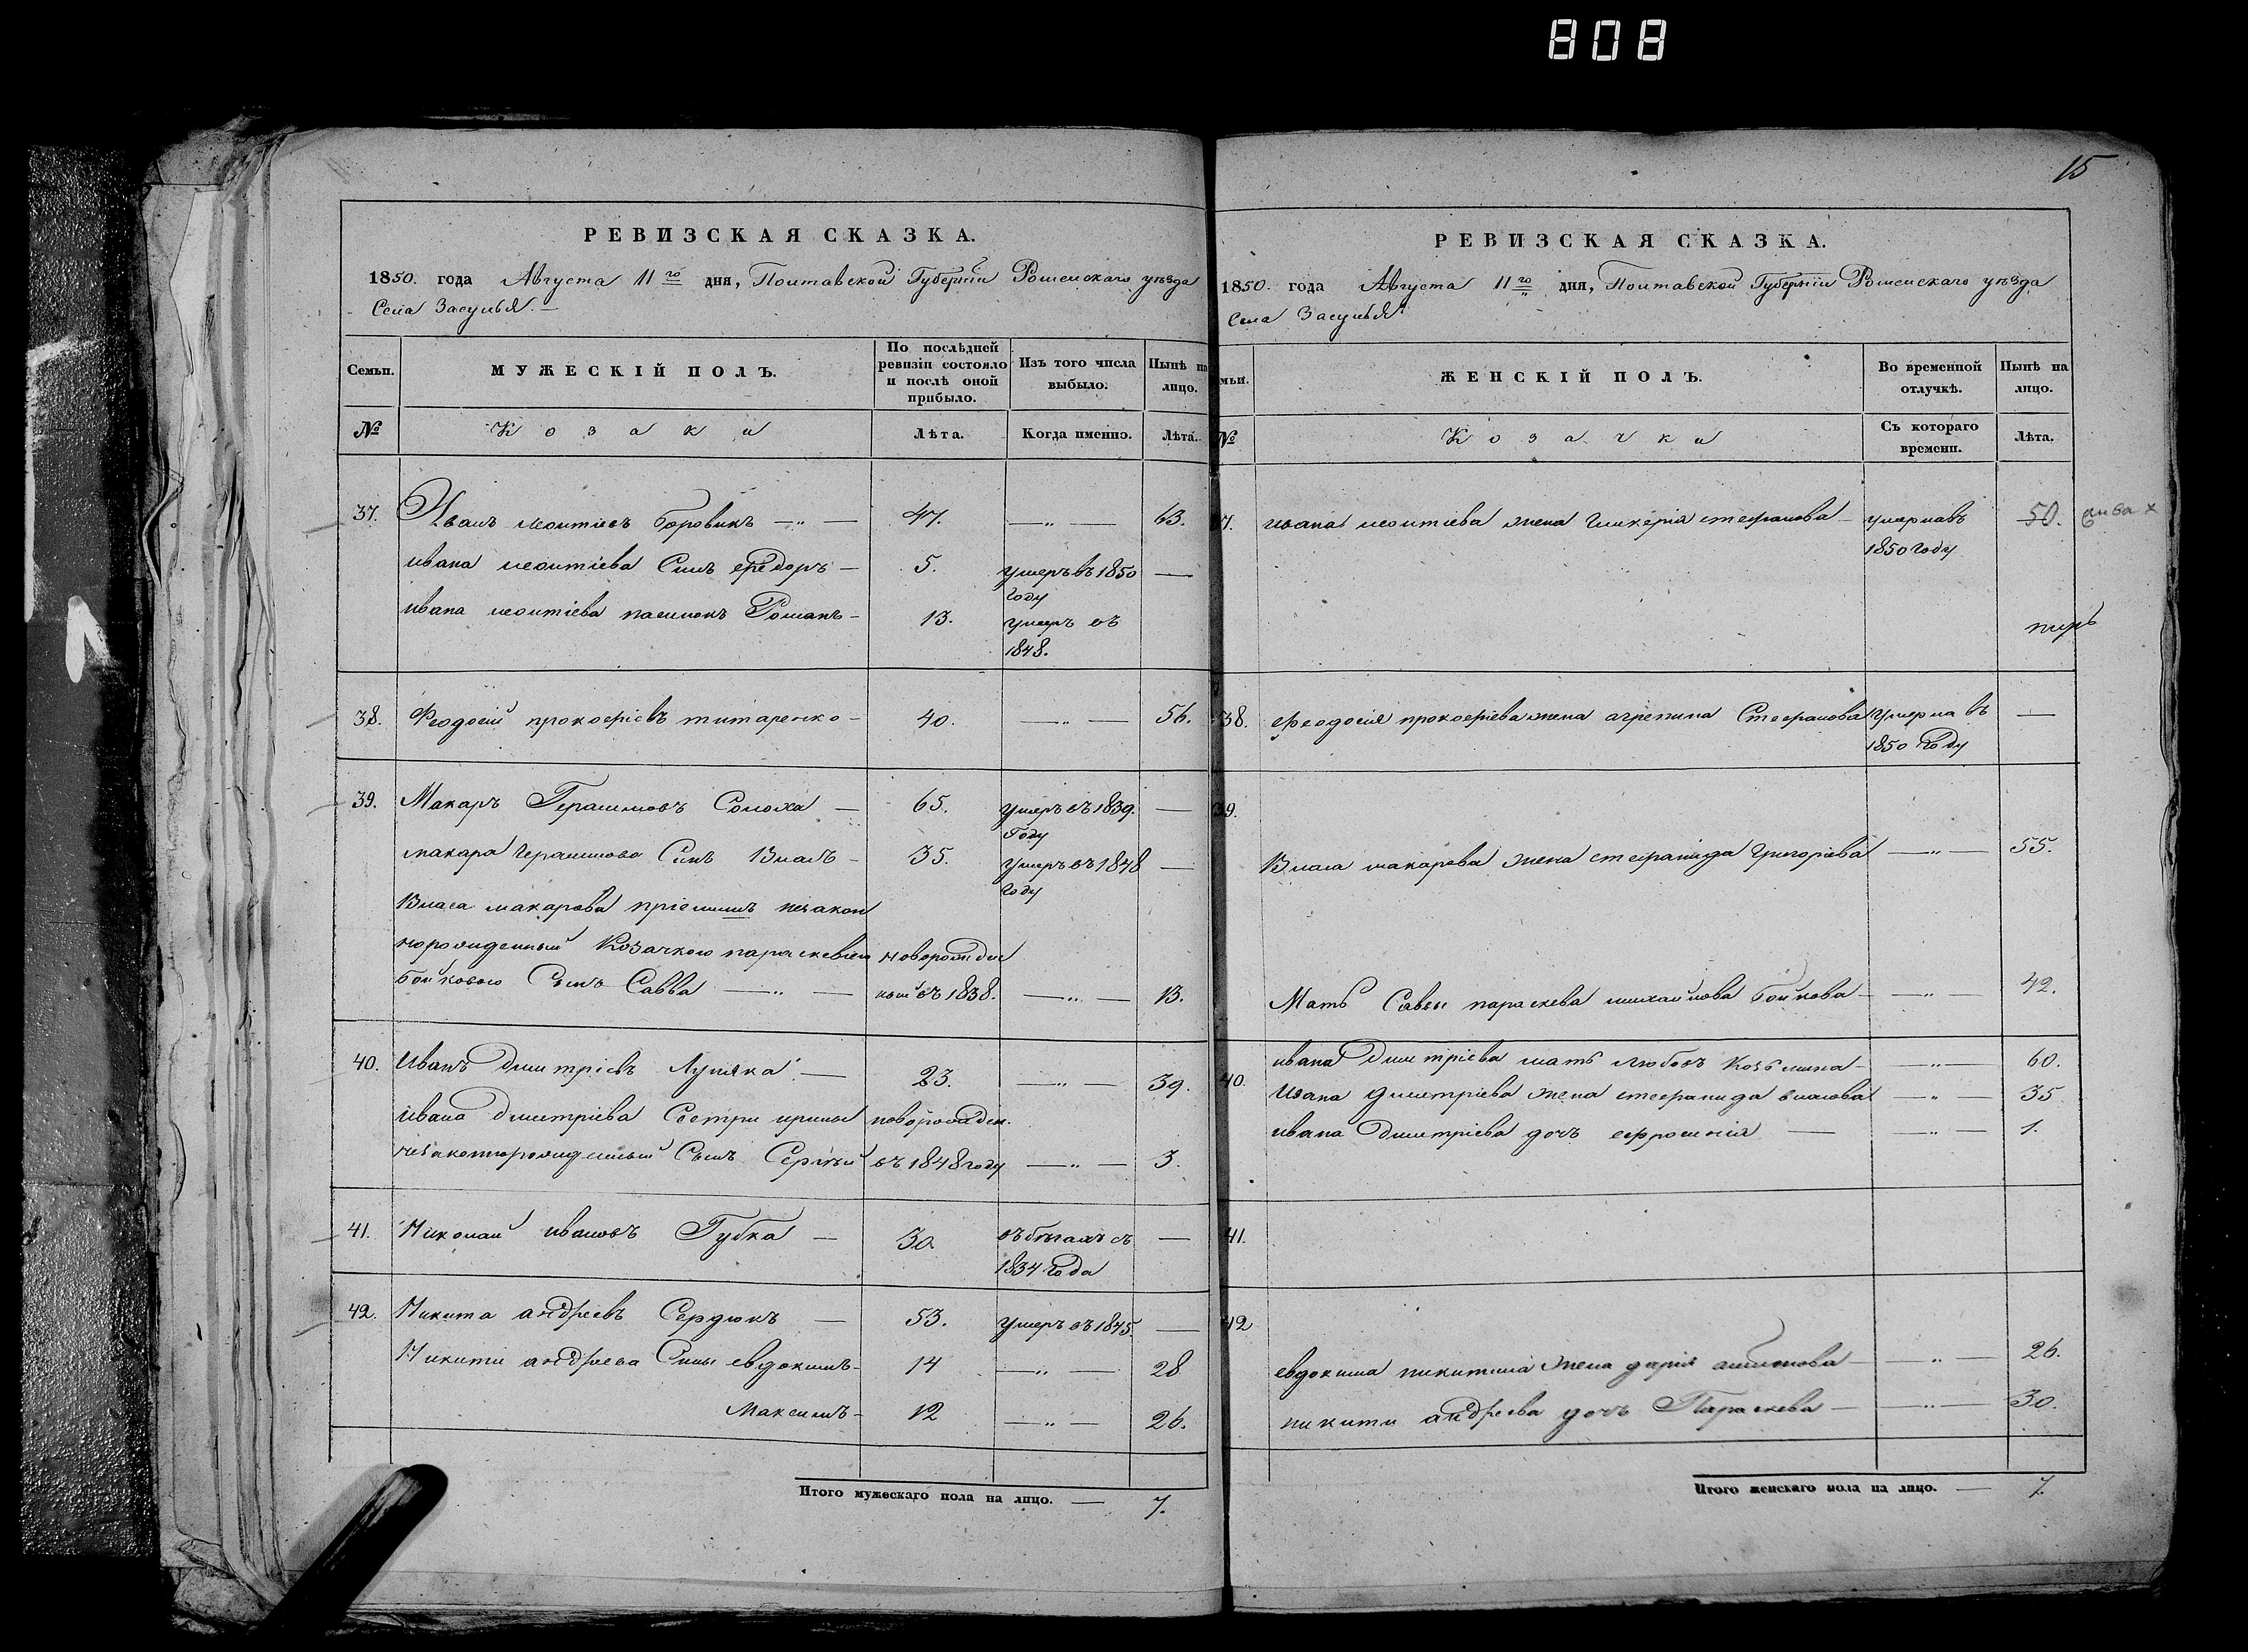 808
15
РЕВИЗСКАЯ СКАЗКА.
1850. года Августа 11го дня, Полтавской Губерніи Роменскаго уѣзда
Села Засулья. —
Семьи.
МУЖЕСКІЙ ПОЛЪ.
По послѣдней ревизіи состояло и послѣ оной прибыло.
Изъ того числа выбыло.
Нынѣ на лицо.
№
Козаки
Лѣта.
Когда именно.
Лѣта.
37. Иванъ Леонтіевъ Боровикъ — 47. — 63.
Ивана Леонтіева Сынъ Федоръ — 5. умеръ въ 1850 году —
Ивана Леонтіева пасынокъ Романъ — 13. умеръ въ 1848.
38. Феодосій Прокофіевъ Титаренко — 40. — 56.
39. Макаръ Герасимовъ Солоха — 65. умеръ въ 1839. году —
Макара Герасимова Сынъ Власъ — 35. умеръ въ 1848 году —
Власа Макарова пріемышъ незакон
норожденный Козачкою Параскевіею новорожден
Бойковою Сынъ Савва — ный въ 1838. — 13.
40. Иванъ Дмитріевъ Лупяка — 23. — 39.
Ивана Дмитріева Сестры Ирины новорожден.
незаконнорожденный Сынъ Сергѣй въ 1848 году — 3.
41. Николай Ивановъ Губка — 30. въ бѣгахъ съ 1834 года —
42. Никита Андреевъ Сердюкъ — 53. умеръ въ 1845 —
Никиты Андреева Сыны Евдокимъ — 14 — 28
Максимъ — 12 — 26.
Итого мужескаго пола на лицо. — 7.
РЕВИЗСКАЯ СКАЗКА.
1850. года Августа 11го дня, Полтавской Губерніи Роменскаго уѣзда
Села Засулья.
мьи.
ЖЕНСКІЙ ПОЛЪ.
Во временной отлучкѣ.
Нынѣ на лицо.
№
Козачки
Съ котораго времени.
Лѣта.
7. Ивана Леонтіева жена Гликерія Стефанова — умерла въ 1850 году 50.
38. Феодосія Прокофіева жена Агрепина Стефанова умерла въ 1850 году —
39.
Власа Макарова жена Стефанида Григоріева — 55.
Мать Саввы Параскева Михайлова Бойкова — 42.
40. Ивана Дмитріева мать Любовъ Козьмина — 60.
Ивана Дмитріева жена Стефанида Власова — 35
Ивана Дмитріева дочъ Ефросинія — 1.
41.
42
Евдокима Никитина жена Дарія — 26.
Никиты Андреева дочъ Параскева — 30.
Итого женскаго пола на лицо. — 7.